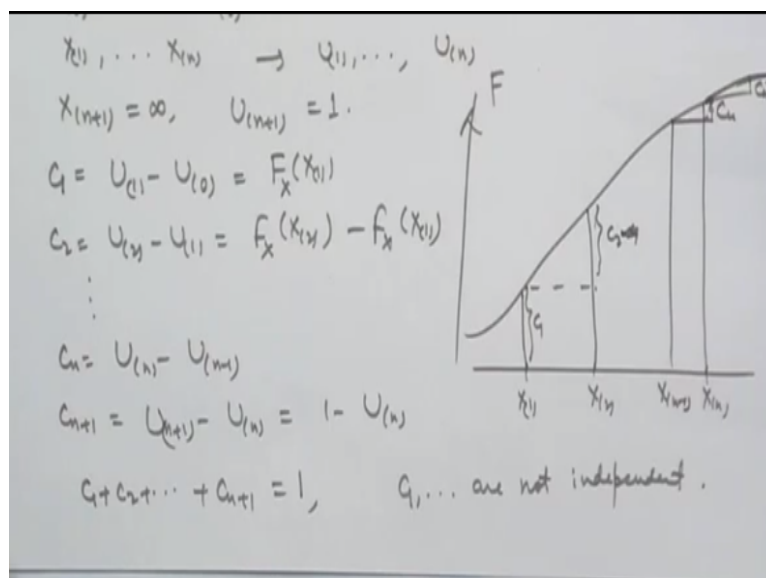 X(1), ... X(n) → U(1), ..., U(n)
X(n+1) = ∞, U(n+1) = 1.
C1 = U(1) - U(0) = Fx(X(1))
C2 = U(2) - U(1) = Fx(X(2)) - Fx(X(1))
⋮
Cn = U(n) - U(n-1)
Cn+1 = U(n+1) - U(n) = 1 - U(n)
C1 + C2 + ... + Cn+1 = 1, C1, ... are not independent.
F
Cn
C1
X(1) X(2) X(n-1) X(n)